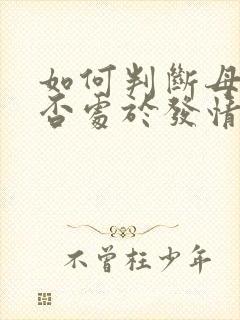 如何判斷母
否處於發情
不曾枉少年